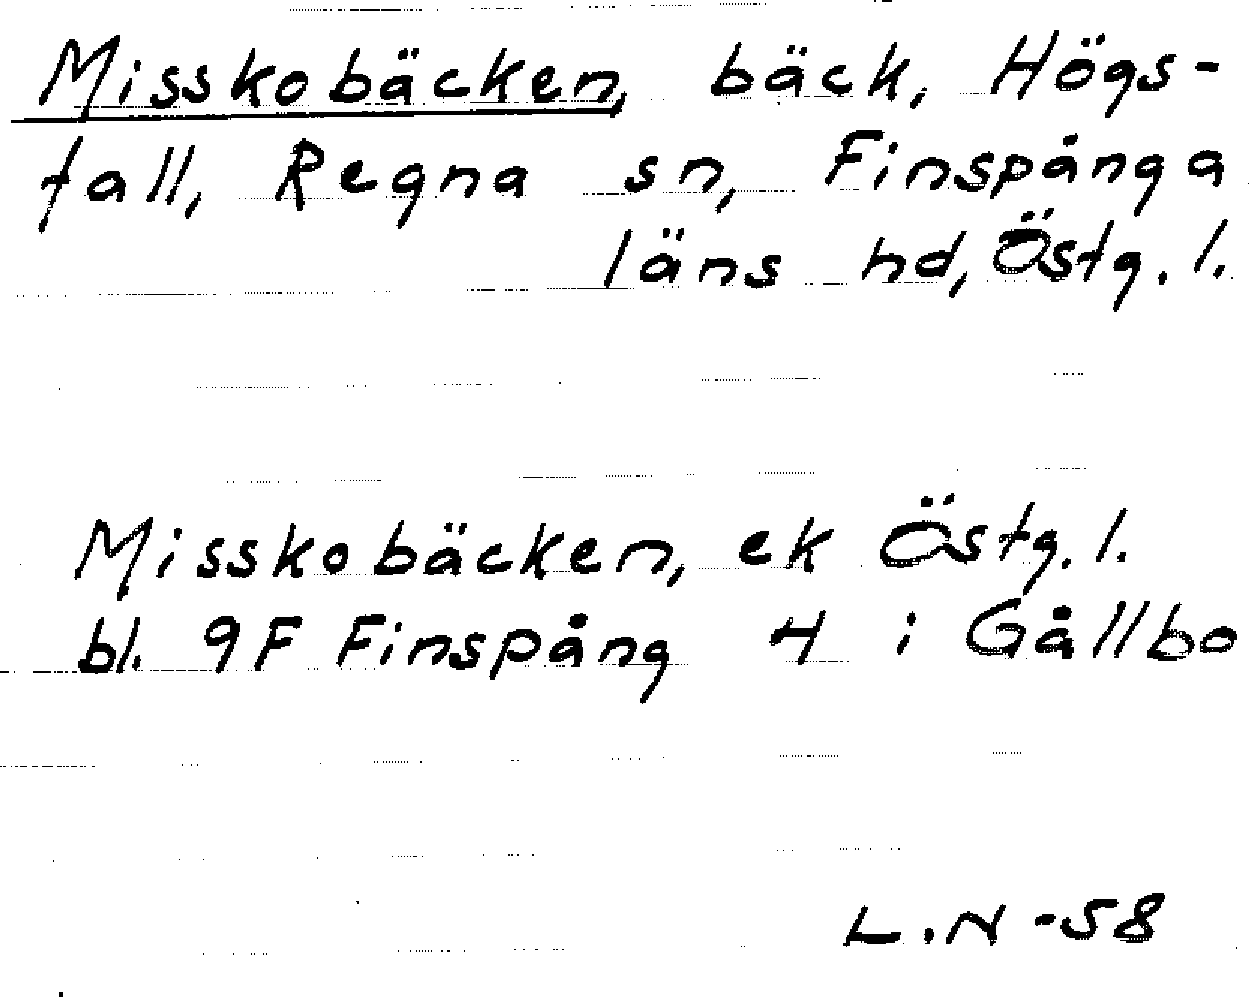 Misskobäcken, bäck, Högs-
tall, Regna sn, Finspånga
läns hd, Östg. l.
Misskobäcken, ek Östg. l.
bl. 9F Finspång 4 i Gållbo
L.N -58